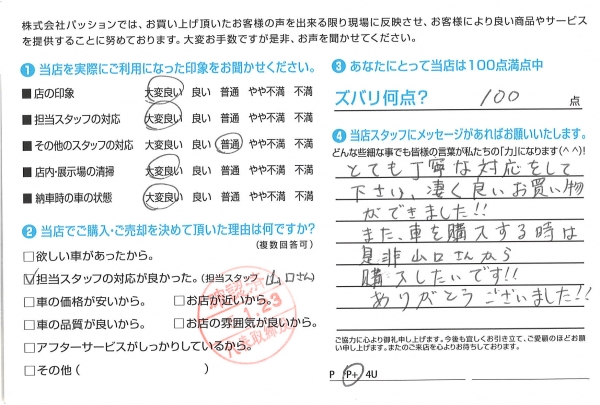 株式会社パッションでは、お買い上げ頂いたお客様の声を出来る限り現場に反映させ、お客様により良い商品やサービス
を提供することに努めております。大変お手数ですが是非、お声を聞かせてください。
① 当店を実際にご利用になった印象をお聞かせください。
■店の印象 大変良い 良い 普通 やや不満 不満
■担当スタッフの対応 大変良い 良い 普通 やや不満 不満
■その他のスタッフの対応 大変良い 良い 普通 やや不満 不満
■店内・展示場の清掃 大変良い 良い 普通 やや不満 不満
■納車時の車の状態 大変良い 良い 普通 やや不満 不満
② 当店でご購入・ご売却を決めて頂いた理由は何ですか?
(複数回答可)
□欲しい車があったから。
☑担当スタッフの対応が良かった。(担当スタッフ 山口さん)
□車の価格が安いから。 □お店が近いから。
□車の品質が良いから。 □お店の雰囲気が良いから。
□アフターサービスがしっかりしているから。
□その他( )
1.23
③ あなたにとって当店は100点満点中
ズバリ何点? 100 点
④ 当店スタッフにメッセージがあればお願いいたします。
どんな些細な事でも皆様の言葉が私たちの「力」になります(^^)!
とても丁寧な対応をして
下さい、凄く良いお買い物
ができました!!
また、車を購入する時は
是非山口さんから
購入したいです!!
ありがとうございました!!
ご協力に心より御礼申し上げます。今後も宜しくお引き立て、ご愛顧のほどお願
い申し上げます。またのご来店を心よりお待ちしております。
P P+ 4U